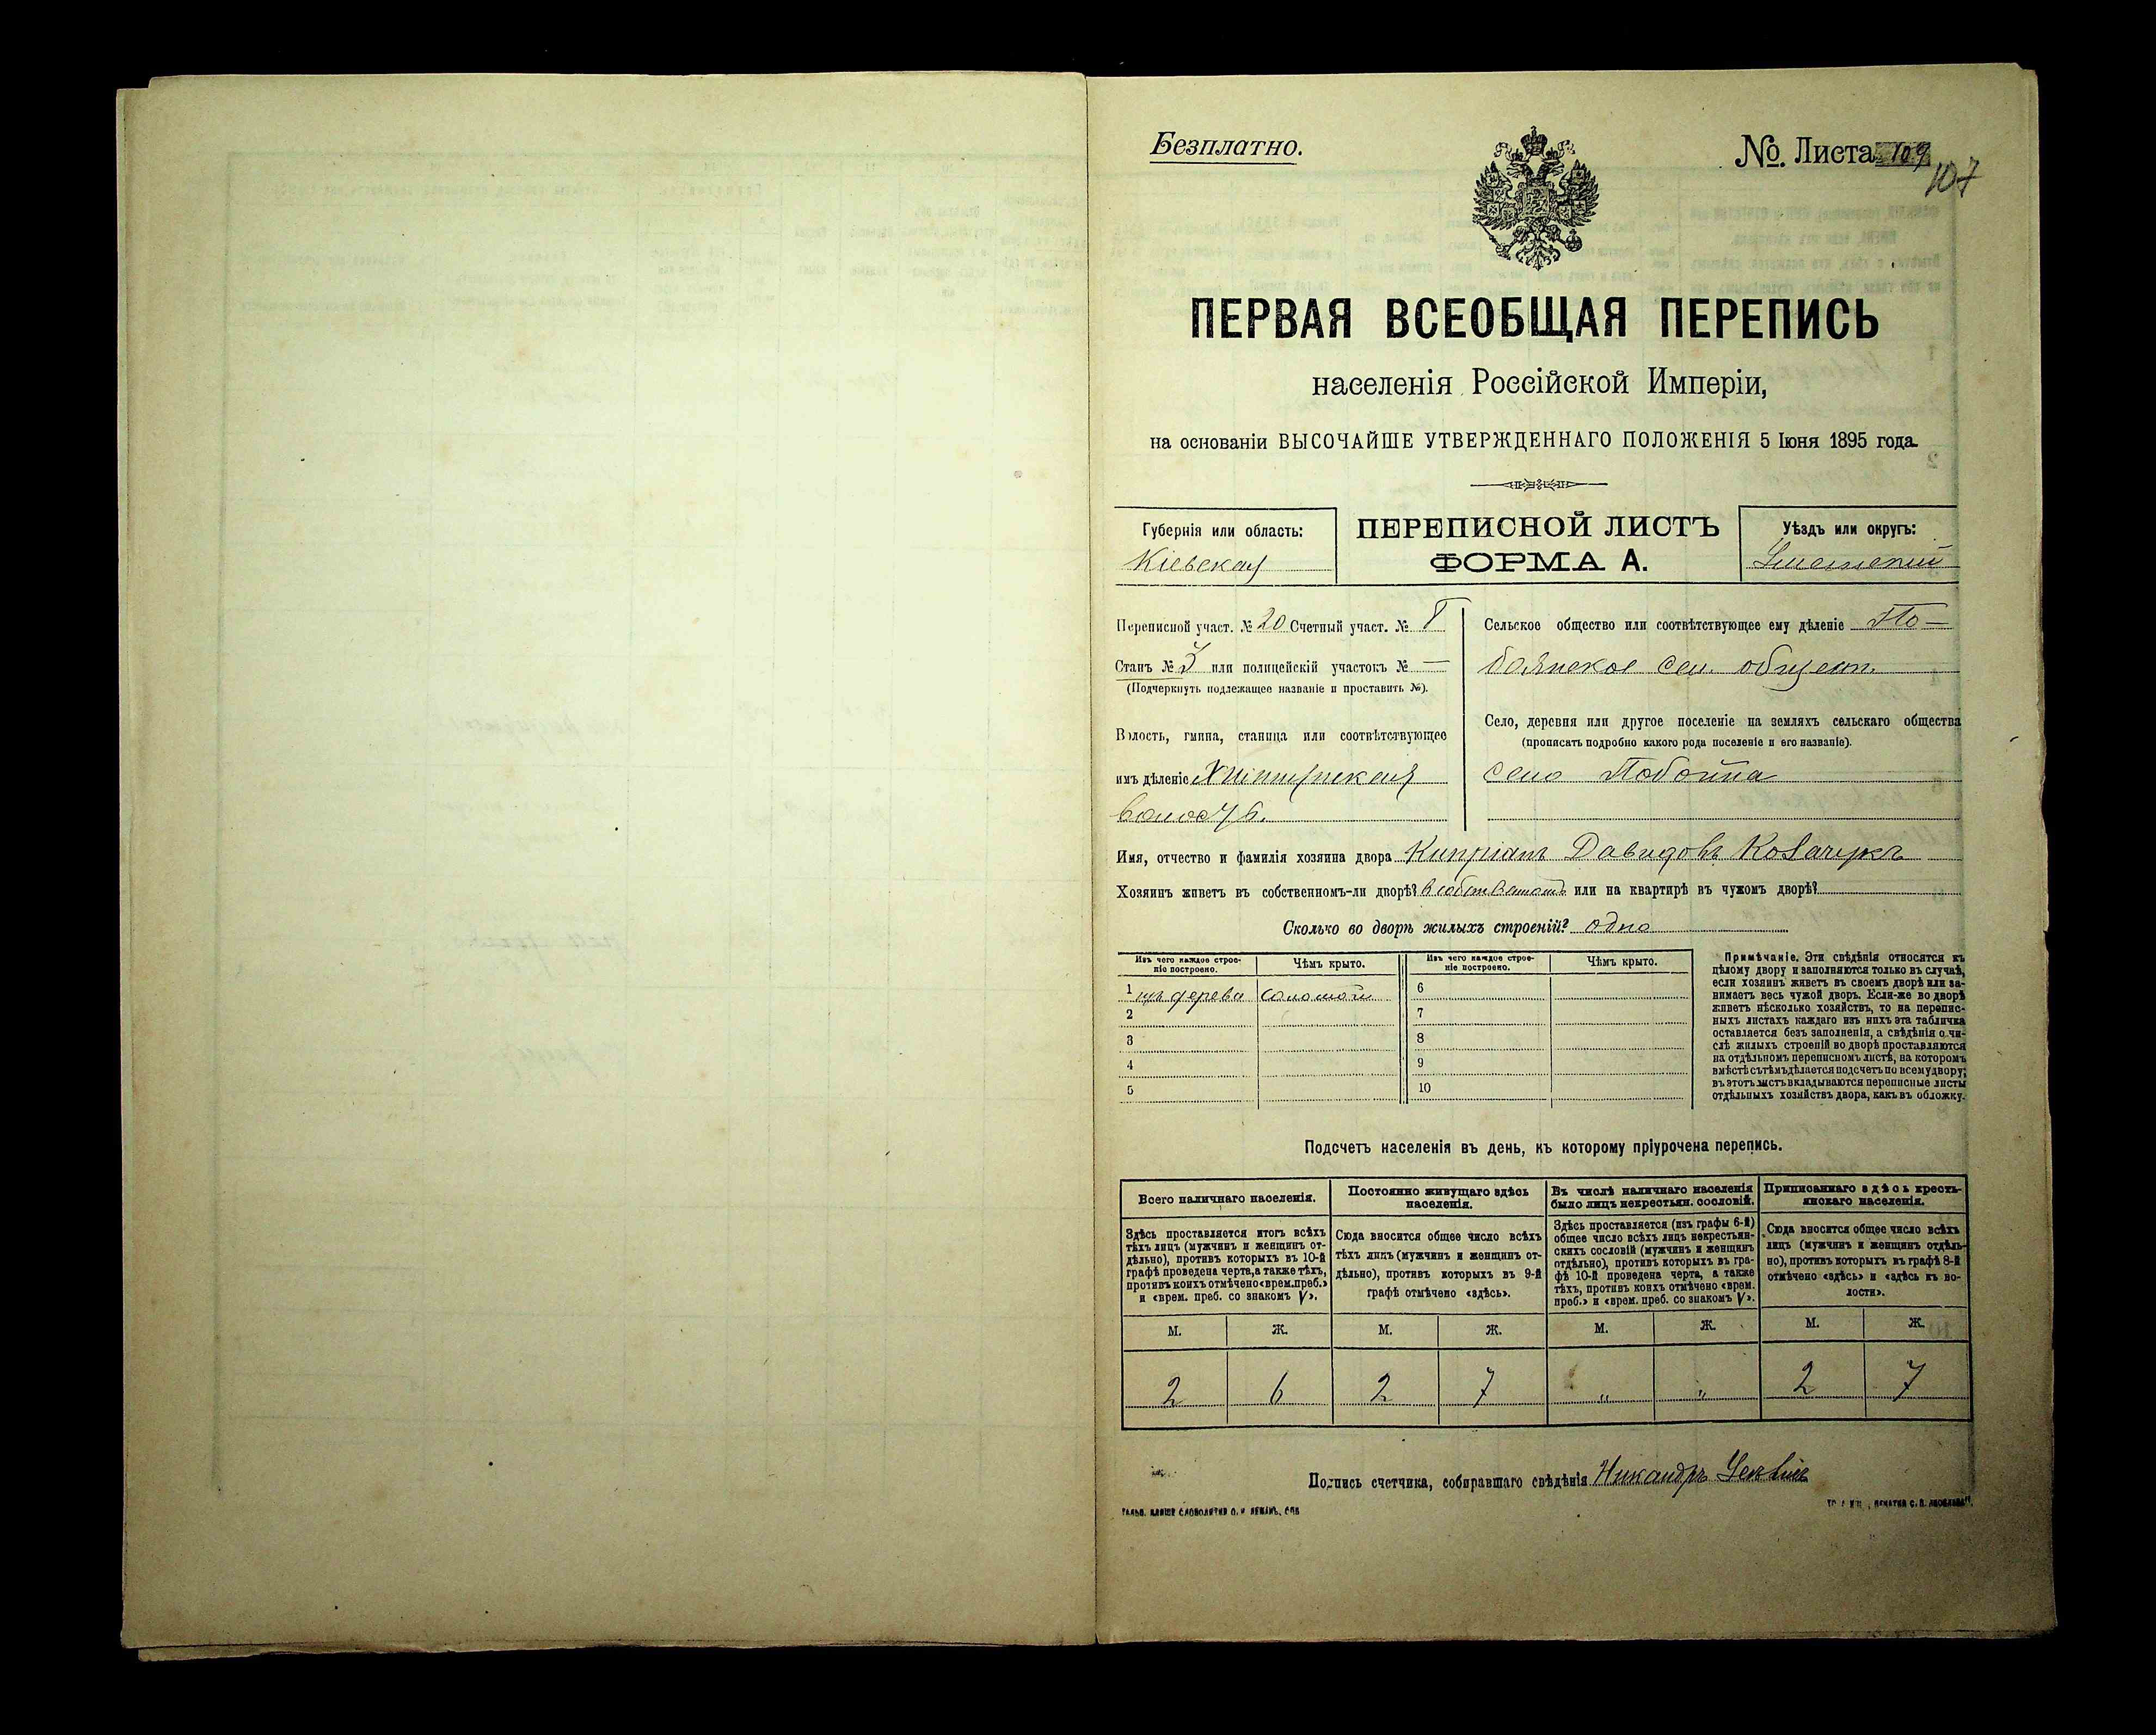 Безплатно.
№. Листа 109
107
ПЕРВАЯ ВСЕОБЩАЯ ПЕРЕПИСЬ
населенія Россійской Имперіи,
на основаніи ВЫСОЧАЙШЕ УТВЕРЖДЕННАГО ПОЛОЖЕНІЯ 5 Іюня 1895 года
Губернія или область:
Кіевская
ПЕРЕПИСНОЙ ЛИСТЪ
ФОРМА А.
Уѣздъ или округъ:
Переписной участ. № 20 Счетный участ. №
Станъ № 3 или полицейскій участокъ № —
(Подчеркнуть подлежащее названіе и проставить №).
Волость, гмина, станица или соотвѣтствующее
имъ дѣленіе
волость.
Сельское общество или соотвѣтствующее ему дѣленіе По-
боянское сел. общест.
Село, деревня или другое поселеніе на земляхъ сельскаго общества
(прописать подробно какого рода поселеніе и его названіе).
село Побойна
Имя, отчество и фамилія хозяина двора Кипріанъ Давидовъ
Хозяинъ живетъ въ собственномъ-ли дворѣ? в собственномъ или на квартирѣ въ чужомъ дворѣ?
Сколько во дворѣ жилыхъ строеній? одно
Изъ чего каждое строеніе построено.
Чѣмъ крыто.
Изъ чего каждое строеніе построено.
Чѣмъ крыто.
1 изъ дерева соломой 6
2 7
3 8
4 9
5 10
Примѣчаніе. Эти свѣдѣнія относятся къ
цѣлому двору и заполняются только въ случаѣ,
если хозяинъ живетъ въ своемъ дворѣ или за-
нимаетъ весь чужой дворъ. Если-же во дворѣ
живетъ нѣсколько хозяйствъ, то на перепис-
ныхъ листахъ каждаго изъ нихъ эта табличка
оставляется безъ заполненія, а свѣдѣнія о чи-
слѣ жилыхъ строеній во дворѣ проставляются
на отдѣльномъ переписномъ листѣ, на которомъ
вмѣстѣ съ тѣмъ дѣлается подсчетъ по всему двору;
въ этотъ листъ вкладываются переписные листы
отдѣльныхъ хозяйствъ двора, какъ въ обложку.
Подсчетъ населенія въ день, къ которому пріурочена перепись.
Всего наличнаго населенія.
Здѣсь проставляется итогъ всѣхъ
тѣхъ лицъ (мужчинъ и женщинъ от-
дѣльно), противъ которыхъ въ 10-й
графѣ проведена черта, а также тѣхъ,
противъ коихъ отмѣчено «врем. преб.»
и «врем. преб. со знакомъ V».
Постоянно живущаго здѣсь
населенія.
Сюда вносится общее число всѣхъ
тѣхъ лицъ (мужчинъ и женщинъ от-
дѣльно), противъ которыхъ въ 9-й
графѣ отмѣчено «здѣсь».
Въ числѣ наличнаго населенія
было лицъ некрестьян. сословій.
Здѣсь проставляется (изъ графы 6-й)
общее число всѣхъ лицъ некрестьян-
скихъ сословій (мужчинъ и женщинъ
отдѣльно), противъ которыхъ въ гра-
фѣ 10-й проведена черта, а также
тѣхъ, противъ коихъ отмѣчено «врем.
преб.» и «врем. преб. со знакомъ V».
Приписаннаго здѣсь кресть-
янскаго населенія.
Сюда вносится общее число всѣхъ
лицъ (мужчинъ и женщинъ отдѣль-
но), противъ которыхъ въ графѣ 8-й
отмѣчено «здѣсь» и «здѣсь къ во-
лости».
М. Ж. М. Ж. М. Ж. М. Ж.
2 6 2 7 " " 2 7
Подпись счетчика, собиравшаго свѣдѣнія Никандръ